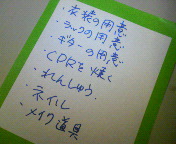 ・衣装の用意
・ラックの用意
・ギターの用意
・CDRを焼く
・れんしゅう
・ネイル
・メイク道具